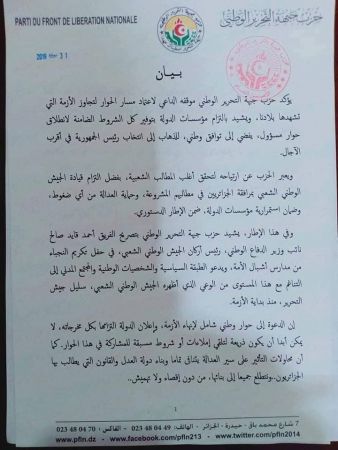 PARTI DU FRONT DE LIBERATION NATIONALE
حزب جبهة التحرير الوطني
31 2019
بيان
يؤكد حزب جبهة التحرير الوطني موقفه الداعي لاعتماد مسار الحوار لتجاوز الأزمة التي
تشهدها بلادنا، ويشيد بالتزام مؤسسات الدولة بتوفير كل الشروط الضامنة لانطلاق
حوار مسؤول، يفضي إلى توافق وطني، للذهاب إلى انتخاب رئيس الجمهورية في أقرب
الآجال.
ويعبر الحزب عن ارتياحه لتحقق أغلب المطالب الشعبية، بفضل التزام قيادة الجيش
الوطني الشعبي بمرافقة الجزائريين في مطالبهم المشروعة، وحماية العدالة من أي ضغوط،
وضمان استمرارية مؤسسات الدولة، ضمن الإطار الدستوري.
وفي هذا الإطار، يشيد حزب جبهة التحرير الوطني بتصريح الفريق أحمد قايد صالح
نائب وزير الدفاع الوطني، رئيس أركان الجيش الوطني الشعبي، في حفل تكريم النجباء
من مدارس أشبال الأمة، ويدعو الطبقة السياسية والشخصيات الوطنية والمجتمع المدني إلى
التناغم مع هذا المستوى من الوعي الذي أظهره الجيش الوطني الشعبي، سليل جيش
التحرير، منذ بداية الأزمة.
إن الدعوة إلى حوار وطني شامل لإنهاء الأزمة، وإعلان الدولة التزامها بكل مخرجاته، لا
يمكن أبدا أن يكون ذريعة لتلقي إملاءات أو شروط مسبقة للمشاركة في هذا الحوار. كما
أن محاولات التأثير على سير العدالة يتنافى تماما وبناء دولة العدل والقانون التي يطالب بها
الجزائريون..ونتطلع جميعا إلى بنائها، من دون إقصاء ولا تهميش..
1
7 شارع محمد باق - حيدرة - الجزائر - الهاتف: 49 70 48 023 - الفاكس: 70 04 48 023
www.pfln.dz - www.facebook.com/pfln213 - www.twitter.com/pfln2014